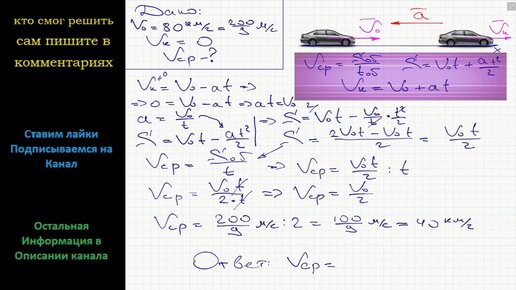 кто смог решить
сам пишите в
комментариях
Ставим лайки
Подписываемся на
Канал
Остальная
Информация в
Описании канала
Дано:
V₀ = 80 км/ч = 200/9 м/с
Vк = 0
Vср - ?
V₀ a Vк
x
Vср = Sоб/tоб S = V₀t + at²/2
Vк = V₀ + at
Vк = V₀ - at ⇒
⇒ 0 = V₀ - at ⇒ at = V₀
a = V₀/t ⇒ S = V₀t - V₀/t · t²/2
S = V₀t - at²/2 S = 2V₀t - V₀t/2 = V₀t/2
Vср = Sоб/t ⇒ Vср = V₀t/2 : t
Vср = V₀t/2·t ⇒ Vср = V₀/2
Vср = 200/9 м/с : 2 = 100/9 м/с = 40 км/ч
Ответ: Vср =